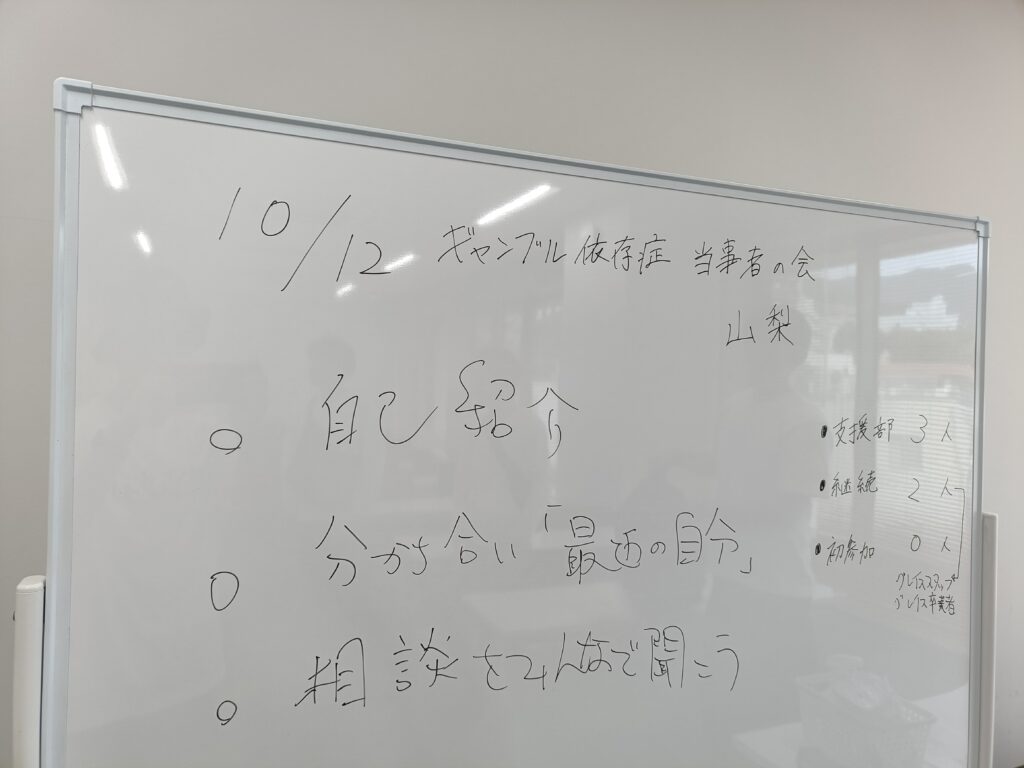 10/12 ギャンブル依存症 当事者の会
山梨
○ 自己紹介
○ 分かち合い「最近の自分」
○ 相談をみんなで聞こう
• 支援部 3人
• 継続 2人
• 初参加 0人
グレイススタッフ
グレイス卒業者